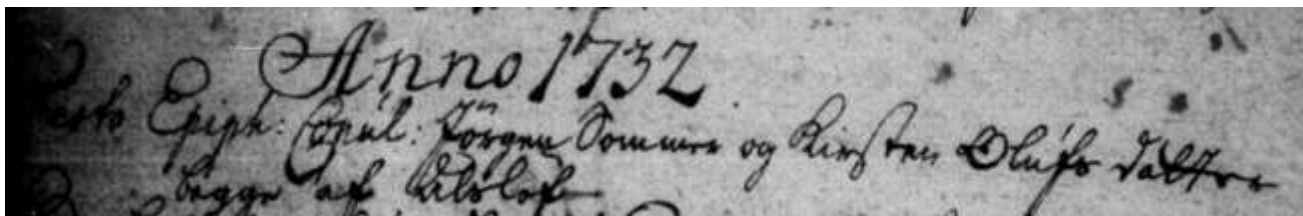 Anno 1732
Festo Epiph: Copul: Jörgen Sommer og Kirsten Olufs datter
begge af